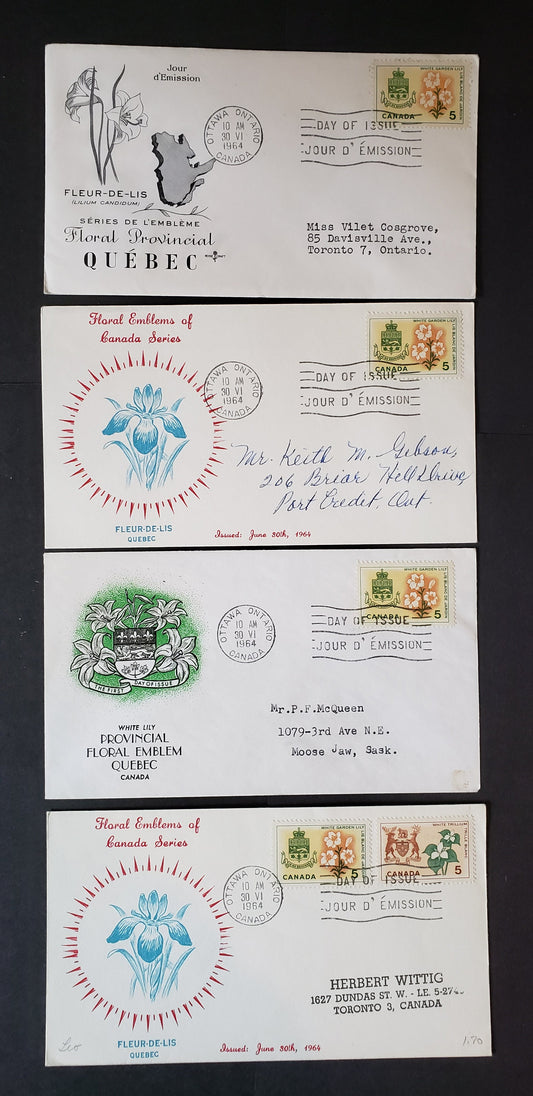 Jour
d'Émission
WHITE GARDEN LILY
LIS BLANC DE JARDIN
CANADA 5
OTTAWA ONTARIO
10 AM
30 VI
1964
CANADA
DAY OF ISSUE
JOUR D'ÉMISSION
FLEUR-DE-LIS
(LILIUM CANDIDUM)
SÉRIES DE L'EMBLÈME
Floral Provincial
QUÉBEC
Miss Vilet Cosgrove,
85 Davisville Ave.,
Toronto 7, Ontario.
Floral Emblems of
Canada Series
WHITE GARDEN LILY
LIS BLANC DE JARDIN
CANADA 5
OTTAWA ONTARIO
10 AM
30 VI
1964
CANADA
DAY OF ISSUE
JOUR D'ÉMISSION
Mr. Keith M. Gibson,
206 Briar Hill Drive
Port Credit, Ont.
FLEUR-DE-LIS
QUEBEC
Issued: June 30th, 1964
WHITE GARDEN LILY
LIS BLANC DE JARDIN
CANADA 5
OTTAWA ONTARIO
10 AM
30 VI
1964
CANADA
DAY OF ISSUE
JOUR D'ÉMISSION
THE FIRST DAY OF ISSUE
WHITE LILY
PROVINCIAL
FLORAL EMBLEM
QUEBEC
CANADA
Mr.P.F.McQueen
1079-3rd Ave N.E.
Moose Jaw, Sask.
Floral Emblems of
Canada Series
WHITE GARDEN LILY
LIS BLANC DE JARDIN
CANADA 5
WHITE TRILLIUM
TRILLE BLANC
CANADA 5
OTTAWA ONTARIO
10 AM
30 VI
1964
CANADA
DAY OF ISSUE
JOUR D'ÉMISSION
HERBERT WITTIG
1627 DUNDAS ST. W. - LE. 5-27
TORONTO 3, CANADA
FLEUR-DE-LIS
QUEBEC
Issued: June 30th, 1964
1.70